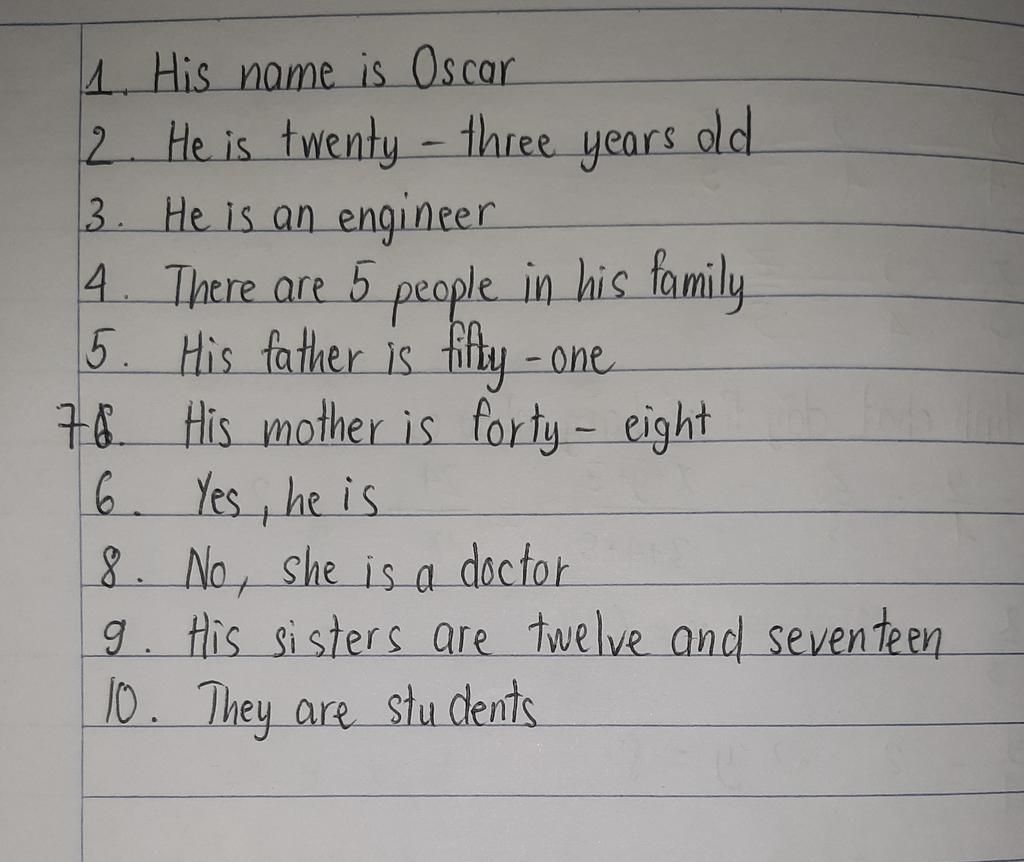 1. His name is Oscar
2. He is twenty - three years old
3. He is an engineer
4. There are 5 people in his family
5. His father is fifty - one
7 6. His mother is forty - eight
6. Yes, he is
8. No, she is a doctor
9. His sisters are twelve and seventeen
10. They are students